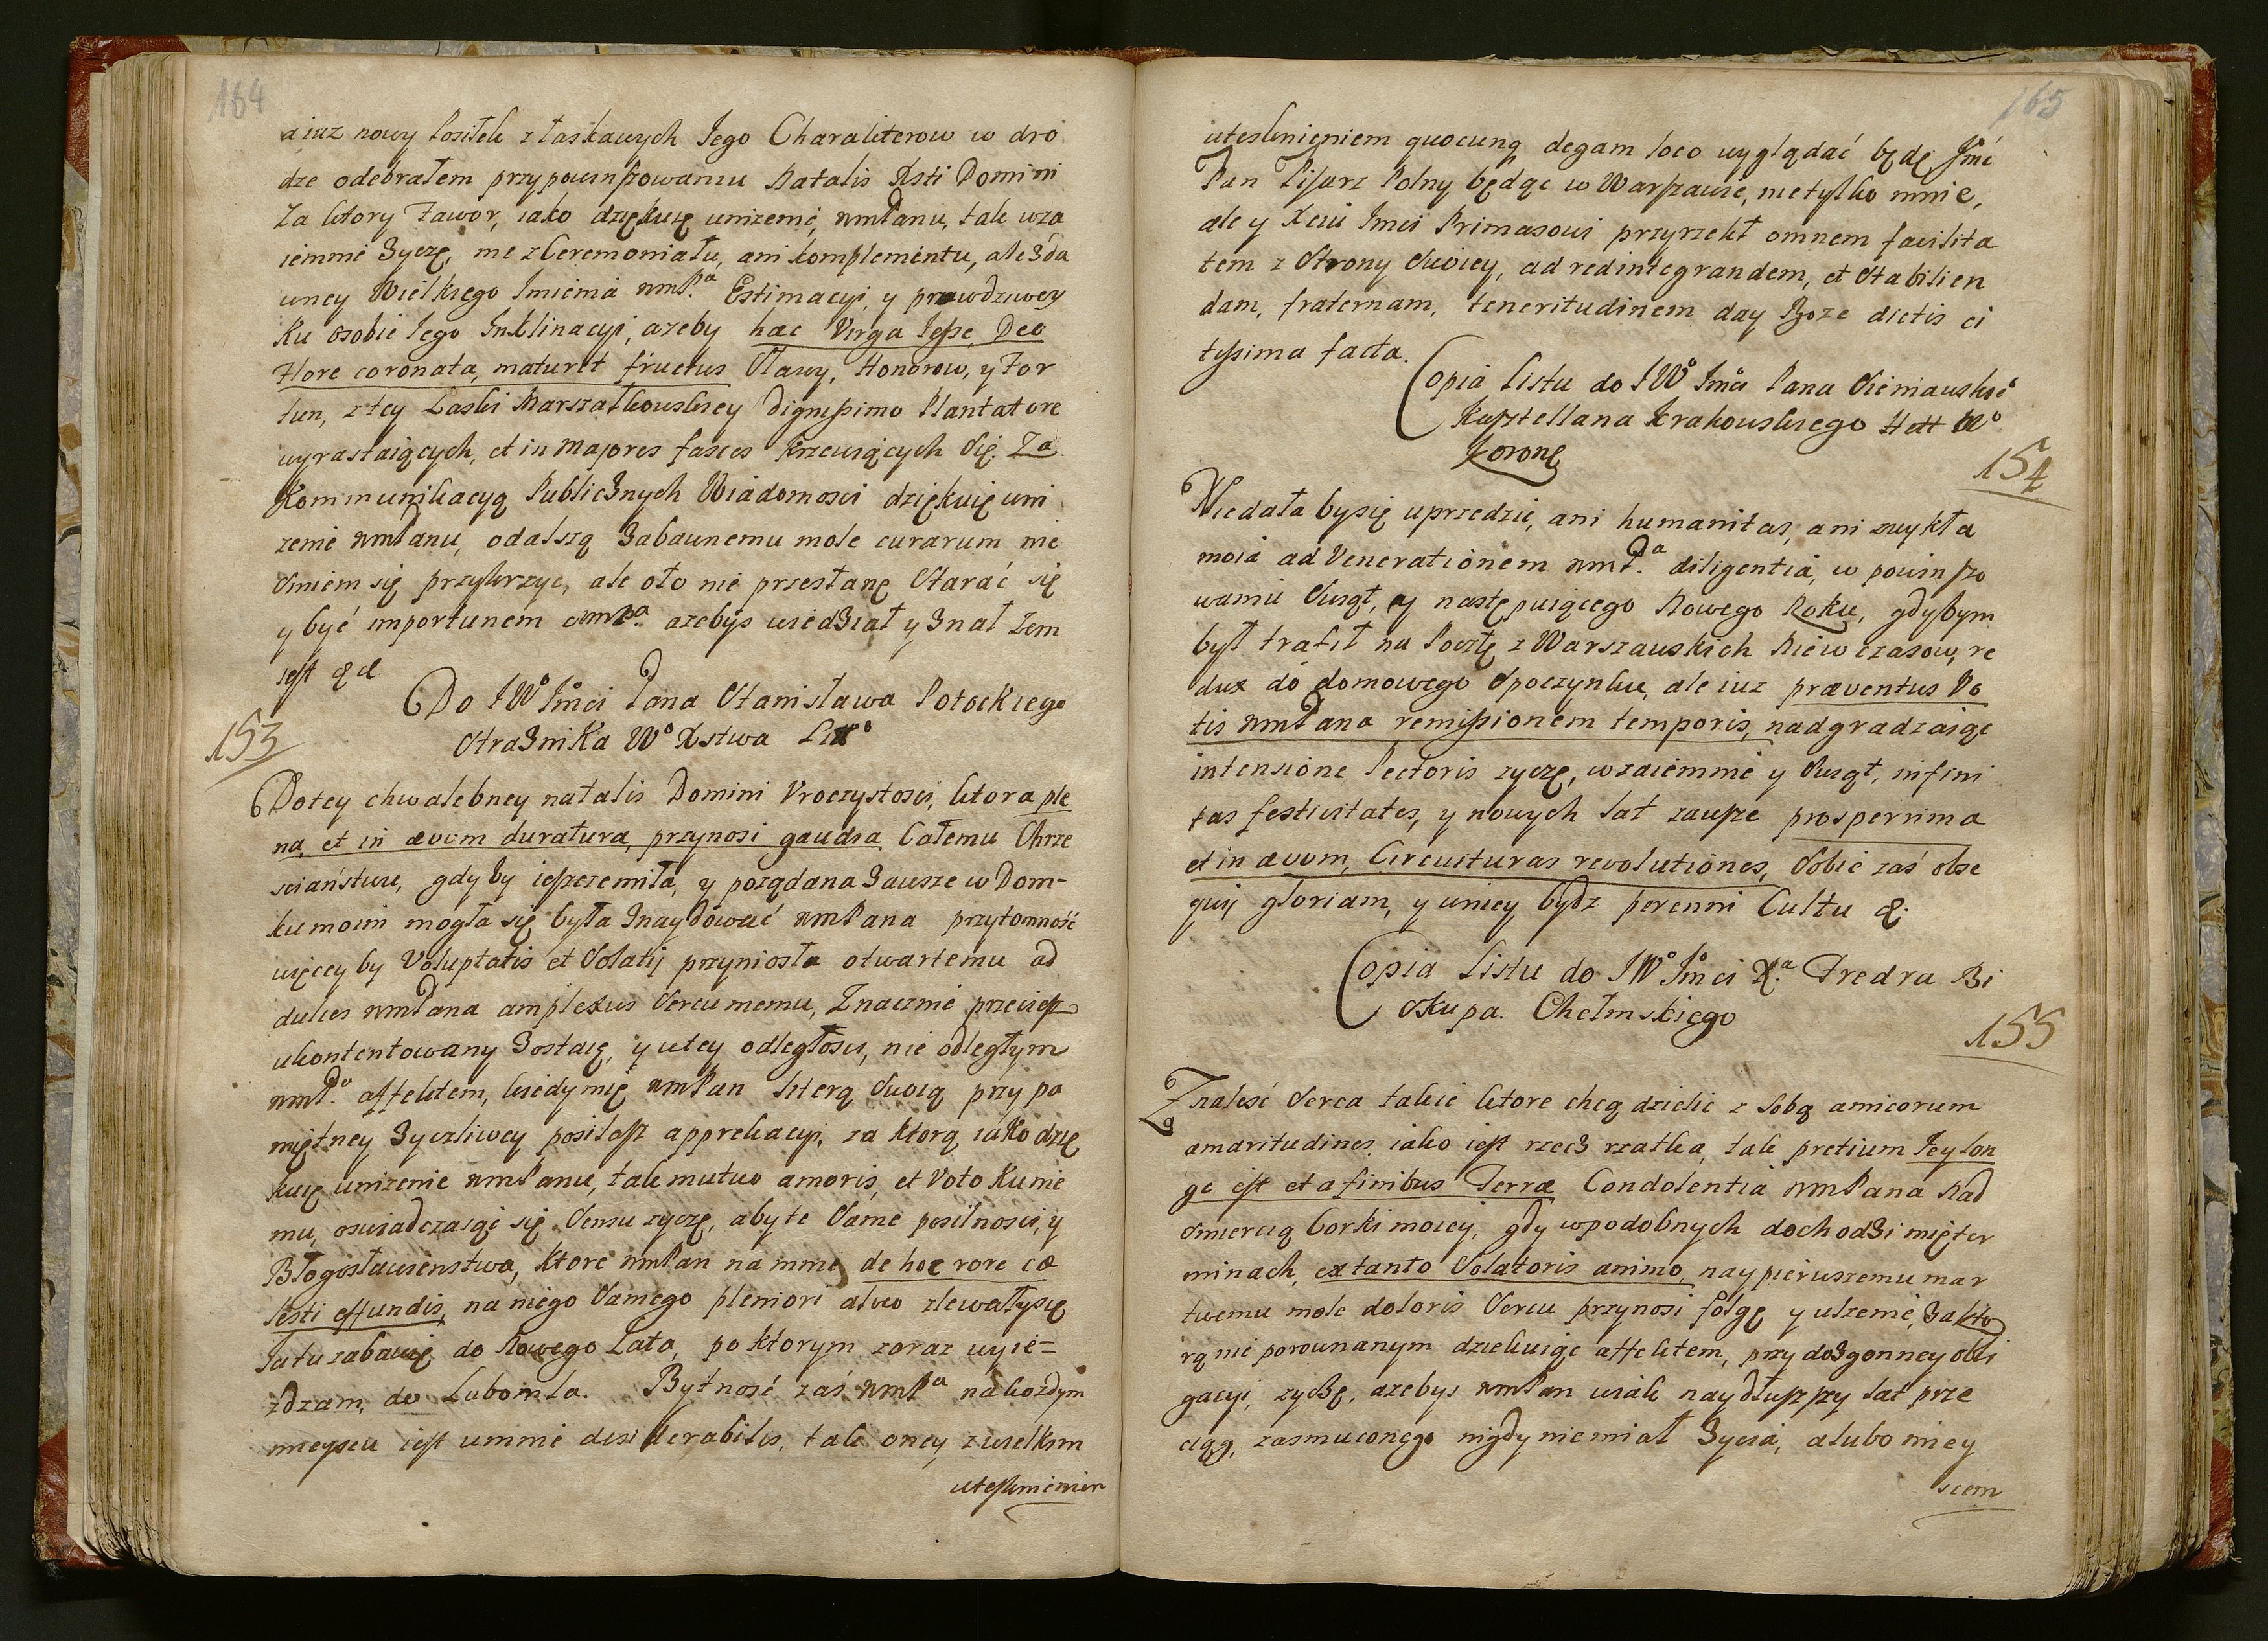 164
a iuz nowy Posiłek z łaskawych Jego Charakterow w dro
dze odebrałem przypowinszowaniu Natalis Xsti Domini
Za ktory Fawor, iako dziękuię unizenie, wmPanu, tak wza
iemnie zyczę, nie z Ceremoniału, ani komplementu, ale zda
wney Wielkiego Imienia wmP.ª Estimacyi, y prawdziwey
Ku osobie Jego Inklinacyi, azeby hac Virga Jesse, Deo
Flore coronata, maturet fructus Sławy, Honorow, y For
tun, z tey Laski Marszałkowskiey Dignissimo Plantatore
wyrastaiących, et in Majores fasces krzewiących się. Za
Kommunikacyą Publicznych Wiadomosci dziękuię uni
zenie wmPanu, o dalszą zabawnemu mole curarum nie
smiem się przykrzyc, ale oto nie przestanę Starać się
y być importunem wmPª. azebys wiedział y znał żem
iest &c.
Do JWº Jmci Pana Stanisława Potockiego
Straznika Wº Xstwa Littº
153
Do tey chwalebney natalis Domini Uroczystosci, ktora ple
na, et in ævum duratura, przynosi gaudia Całemu Chrze
sciaństwu, gdyby ieszcze miła, y poządana zawsze w Dom-
ku moim mogła się była znaydować wmPana przytomność
więcey by Voluptatis et Solatij przyniosła otwartemu ad
dulces wmPana amplexus Sercu memu, Znacznie przeciesz
ukontentowany zostaię, y w tey odległosci, nie odległym
wmP.ª affektem, kiedy mię wmPan literą Swoią przy pa
miętney zyczliwey posilasz apprekacyi, za ktorą, iako dzię
kuię unizenie wmPanu, tak mutuo amoris, et Voto Ku nie
mu, oswiadczaiąc się Sensu zyczę, aby te Same posilnosci, y
Błogosławienstwa, ktore wmPan na mnie de hoc rore cæ
lesti effundis, na niego Samego pleniori alveo zlewały się
Tatu zabawię do Nowego Lata, po ktorym zaraz wyie-
zdzam, do Lubomla. Bytność zaś wmPª na kozdym
mieyscu iest u mnie desiderabilis, tak oney z wielkim
utesknieniem
165
utesknieniem quocunq degam loco wyglądać będę Jmć
Pan Pisarz Polny będąc w Warszawie, nie tylko mnie,
ale y Xciu Jmci Primasowi przyrzekł omnem facilita
tem z Strony Swoiey, ad redintegrandem, et Stabilien
dam, fraternam, teneritudinem day Boze dictis ci
tissima facta.
Copia Listu do JWº Jmci Pana Sieniawskiº
Kasztellana Krakowskiego Hett Wº
Koronę
154
Nie dała by się uprzedzić, ani humanitas, ani zwykła
moia ad Venerationem wmP.ª diligentia, w powinszo
waniu Swiąt, y następuiącego Nowego Roku, gdybym
był trafił na Pocztę z Warszawskich Niewczasow, re
dux do domowego Spoczynku, ale iuz præventus Vo
tis wmPana remissionem temporis, nadgradzaiąc
intensione Pectoris zyczę, wzaiemnie y Swiąt, infini
tas festivitates, y nowych Lat zawsze prosperrima
et in ævum, Circuituras revolutiones, Sobie zaś obse
quij gloriam, y umiey bydz perenni Cultu &.
Copia Listu do JWº Jmci X.ª Fredra Bi
skupa Chełmskiego
155
Znalesć Serca takie ktore chcą dzielic z Sobą amicorum
amaritudines, iako iest rzecz rzatka, tak pretium Jey lon
ge est et a finibus Terræ Condolentia wmPana Nad
Smiercią Corki moiey, gdy w podobnych dochodzi mię ter
minach, ex tanto Solatoris animo, naypierwszemu mar
twemu mole doloris Sercu przynosi folgę y ulzenie, za kto
rą nie porownanym dziekuiąc affektem, przy dozgonney obli
gacyi, zyczę, azebys wmPan wiak naydłuszszy lat prze
ciąg, zasmuconego nigdy nie miał zycia, alubo miey
scem